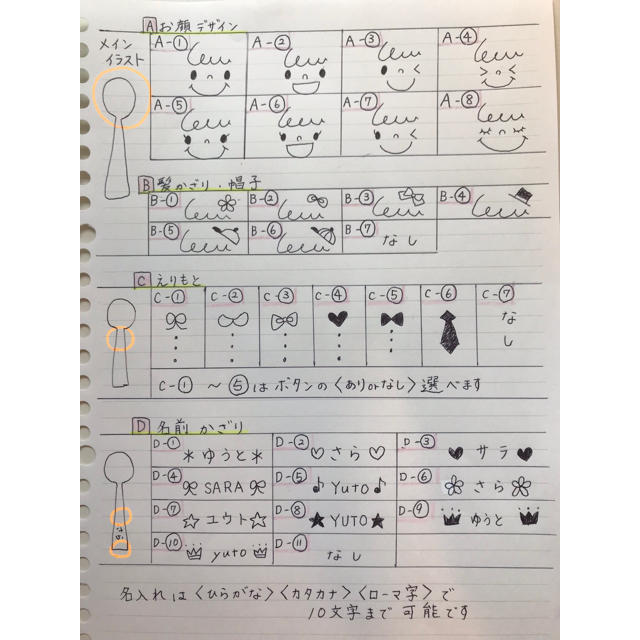 A お顔デザイン
メイン
イラスト
A-① A-② A-③ A-④
A-⑤ A-⑥ A-⑦ A-⑧
B 髪かざり・帽子
B-① B-② B-③ B-④
B-⑤ B-⑥ B-⑦ なし
C えりもと
C-① C-② C-③ C-④ C-⑤ C-⑥ C-⑦
なし
C-① ～ ⑤はボタンの〈ありorなし〉選べます
D 名前かざり
D-① *ゆうと* D-② ♡さら♡ D-③ ♥サラ♥
D-④ SARA D-⑤ ♪Yuto♪ D-⑥ さら
D-⑦ ☆ユウト☆ D-⑧ ★YUTO★ D-⑨ ゆうと
D-⑩ yuto D-⑪ なし
名入れは〈ひらがな〉〈カタカナ〉〈ローマ字〉で
10文字まで可能です